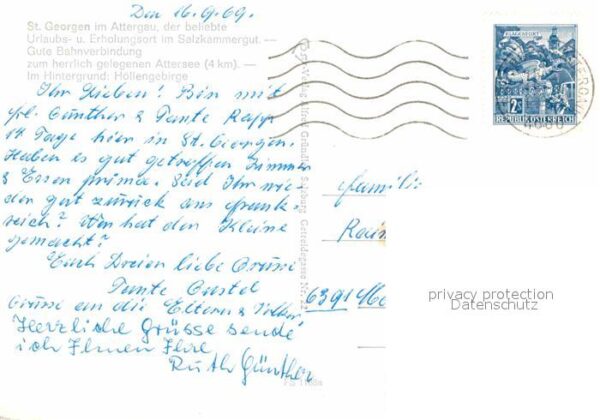 Den 16.9.69.
St. Georgen im Attergau, der beliebte
Urlaubs- u. Erholungsort im Salzkammergut. —
Gute Bahnverbindung
zum herrlich gelegenen Attersee (4 km). —
Im Hintergrund: Höllengebirge
Ihr Lieben! Bin mit
Frl. Günther & Tante Rapp
14 Tage hier in St. Georgen.
Haben es gut getroffen Zimmer
& Essen prima. Seid Ihr wie-
der gut zurück aus Frank-
reich? Was hat der Kleine
gemacht?
Euch Dreien liebe Grüsse
Tante Gustel
Grüsse an die Eltern &
Herzliche Grüsse sendet
ich Ihnen Ihre
Ruth Günther
Verlag Alfred Gründler, Salzburg, Getreidegasse Nr. 22
KLAGENFURT
2
REPUBLIK ÖSTERREICH
Familie
6391
privacy protection
Datenschutz